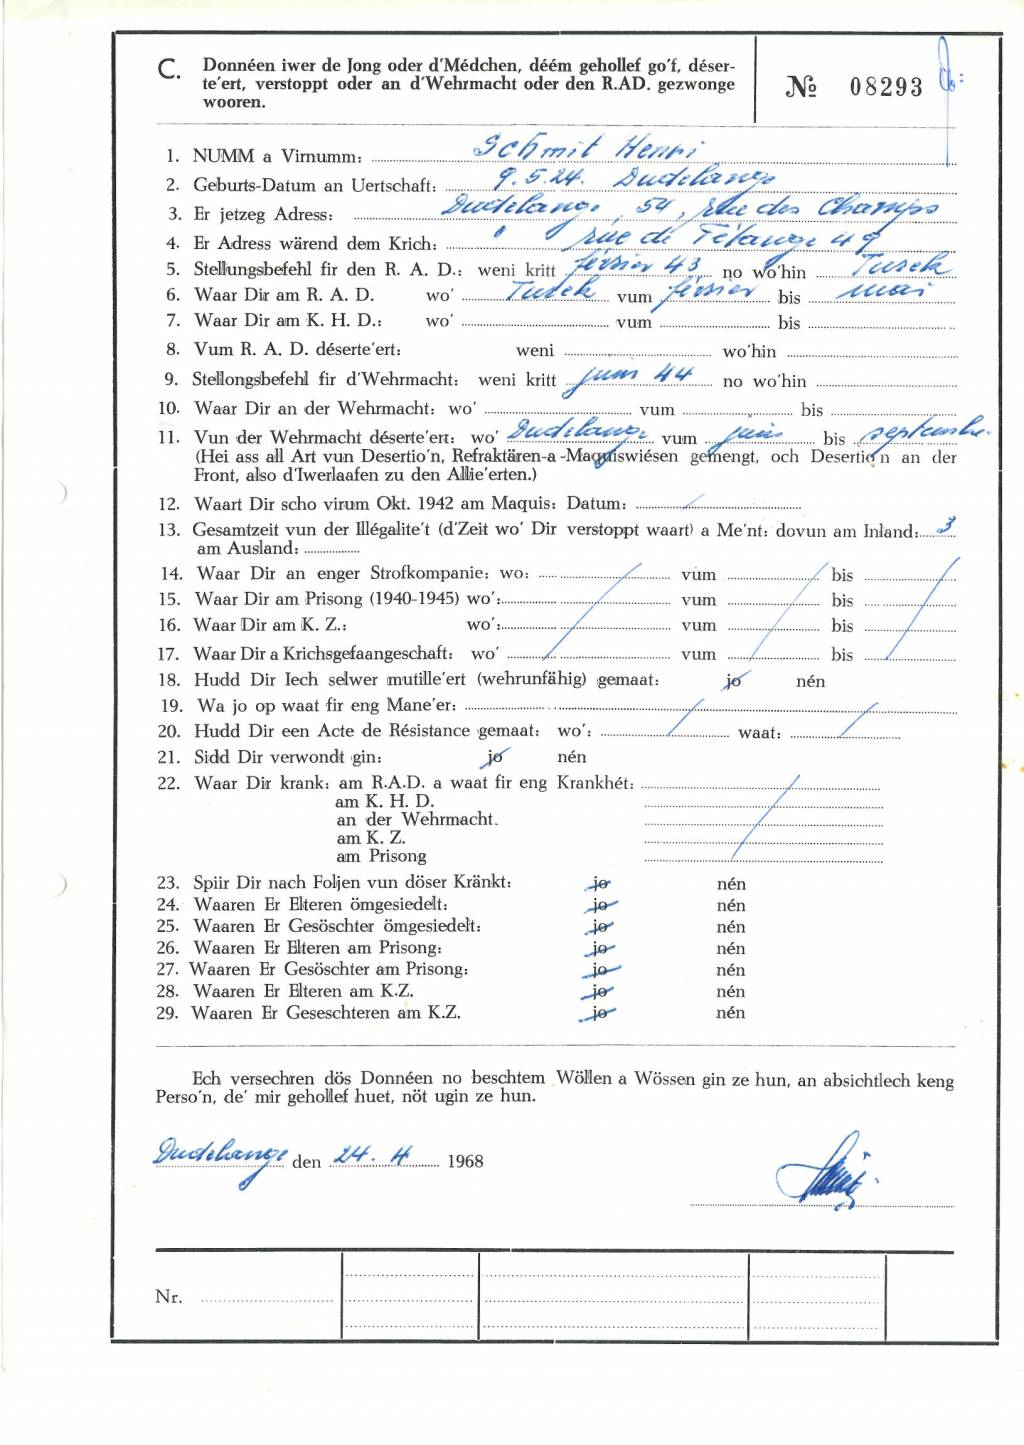 C. Donnéen iwer de Jong oder d'Médchen, déém gehollef go'f, déser-
te'ert, verstoppt oder an d'Wehrmacht oder den R.AD. gezwonge
wooren.
№ 08293
1. NUMM a Virnumm: Schmit Henri
2. Geburts-Datum an Uertschaft: 9.5.24. Dudelange
3. Er jetzeg Adress: Dudelange, 54, rue des Champs
4. Er Adress wärend dem Krich: " rue de Tétange 49
5. Stellungsbefehl fir den R. A. D.: weni kritt février 43 no wo'hin Tusek
6. Waar Dir am R. A. D. wo' Tusek vum février bis mai
7. Waar Dir am K. H. D.: wo' vum bis
8. Vum R. A. D. déserte'ert: weni wo'hin
9. Stellongsbefehl fir d'Wehrmacht: weni kritt juin 44 no wo'hin
10. Waar Dir an der Wehrmacht: wo' vum bis
11. Vun der Wehrmacht déserte'ert: wo' Dudelange vum juin bis septembre.
(Hei ass all Art vun Desertio'n, Refraktären-a -Maquiswiésen gemengt, och Desertio'n an der
Front, also d'Iwerlaafen zu den Allie'erten.)
12. Waart Dir scho virum Okt. 1942 am Maquis: Datum:
13. Gesamtzeit vun der Illégalite't (d'Zeit wo' Dir verstoppt waart) a Me'nt: dovun am Inland: 3
am Ausland:
14. Waar Dir an enger Strofkompanie: wo: vum bis
15. Waar Dir am Prisong (1940-1945) wo': vum bis
16. Waar Dir am K. Z.: wo': vum bis
17. Waar Dir a Krichsgefaangeschaft: wo' vum bis
18. Hudd Dir Iech selwer mutille'ert (wehrunfähig) gemaat: jo nén
19. Wa jo op waat fir eng Mane'er:
20. Hudd Dir een Acte de Résistance gemaat: wo': waat:
21. Sidd Dir verwondt gin: jo nén
22. Waar Dir krank: am R.A.D. a waat fir eng Krankhét:
am K. H. D.
an der Wehrmacht.
am K. Z.
am Prisong
23. Spiir Dir nach Foljen vun döser Kränkt: jo nén
24. Waaren Er Elteren ömgesiedelt: jo nén
25. Waaren Er Gesöschter ömgesiedelt: jo nén
26. Waaren Er Elteren am Prisong: jo nén
27. Waaren Er Gesöschter am Prisong: jo nén
28. Waaren Er Elteren am K.Z. jo nén
29. Waaren Er Geseschteren am K.Z. jo nén
Ech versechren dös Donnéen no beschtem Wöllen a Wössen gin ze hun, an absichtlech keng
Perso'n, de' mir gehollef huet, nöt ugin ze hun.
Dudelange den 24. 4 1968
Nr.